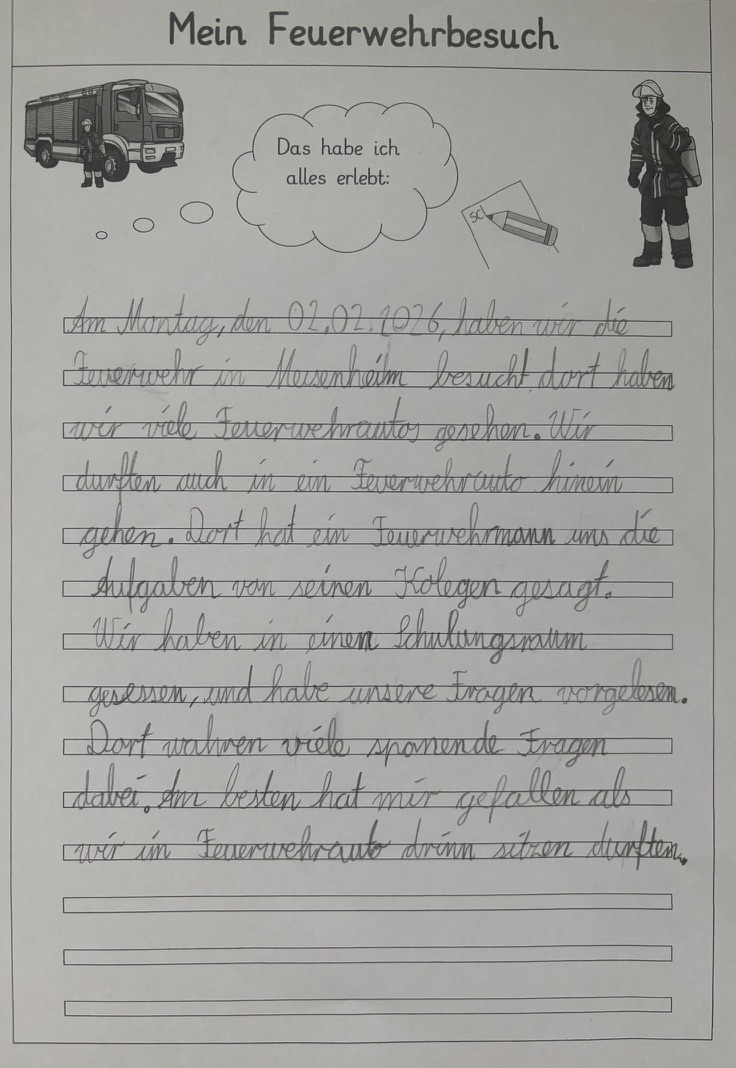 Mein Feuerwehrbesuch
Das habe ich
alles erlebt:
SC
Am Montag, den 02.02.2026, haben wir die
Feuerwehr in Meisenheim besucht dort haben
wir viele Feuerwehrautos gesehen. Wir
durften auch in ein Feuerwehrauto hinein
gehen. Dort hat ein Feuerwehrmann uns die
Aufgaben von seinen Kolegen gesagt.
Wir haben in einem Schulungsraum
gesessen, und habe unsere Fragen vorgelesen.
Dort wahren viele spanende Fragen
dabei. Am besten hat mir gefallen als
wir im Feuerwehrauto drinn sitzen durften.